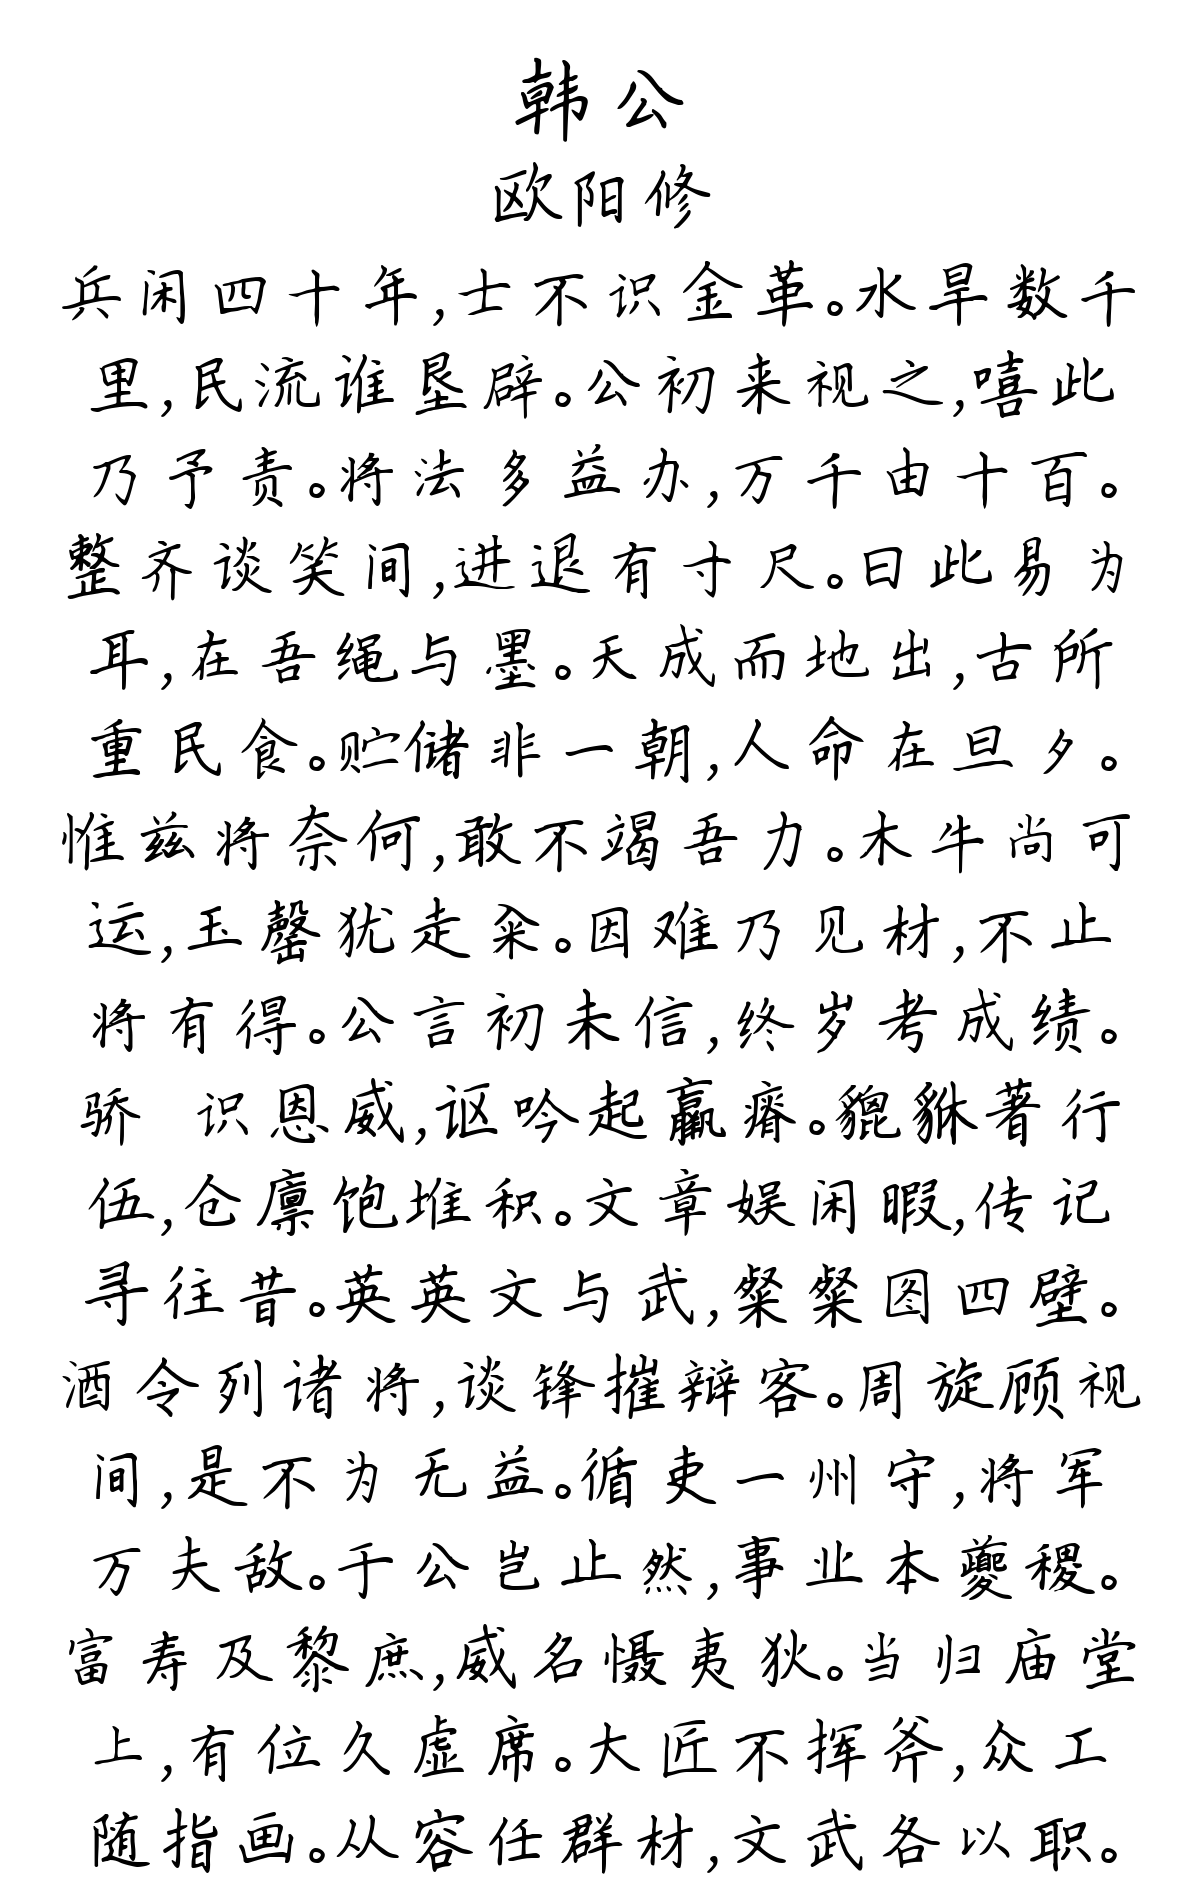 韩公
欧阳修
兵闲四十年,士不识金革。水旱数千
里,民流谁垦辟。公初来视之,嘻此
乃予责。将法多益办,万千由十百。
整齐谈笑间,进退有寸尺。曰此易为
耳,在吾绳与墨。天成而地出,古所
重民食。贮储非一朝,人命在旦夕。
惟兹将奈何,敢不竭吾力。木牛尚可
运,玉罄犹走籴。因难乃见材,不止
将有得。公言初未信,终岁考成绩。
骄 识恩威,讴吟起羸瘠。貔貅著行
伍,仓廪饱堆积。文章娱闲暇,传记
寻往昔。英英文与武,粲粲图四壁。
酒令列诸将,谈锋摧辩客。周旋顾视
间,是不为无益。循吏一州守,将军
万夫敌。于公岂止然,事业本夔稷。
富寿及黎庶,威名慑夷狄。当归庙堂
上,有位久虚席。大匠不挥斧,众工
随指画。从容任群材,文武各以职。